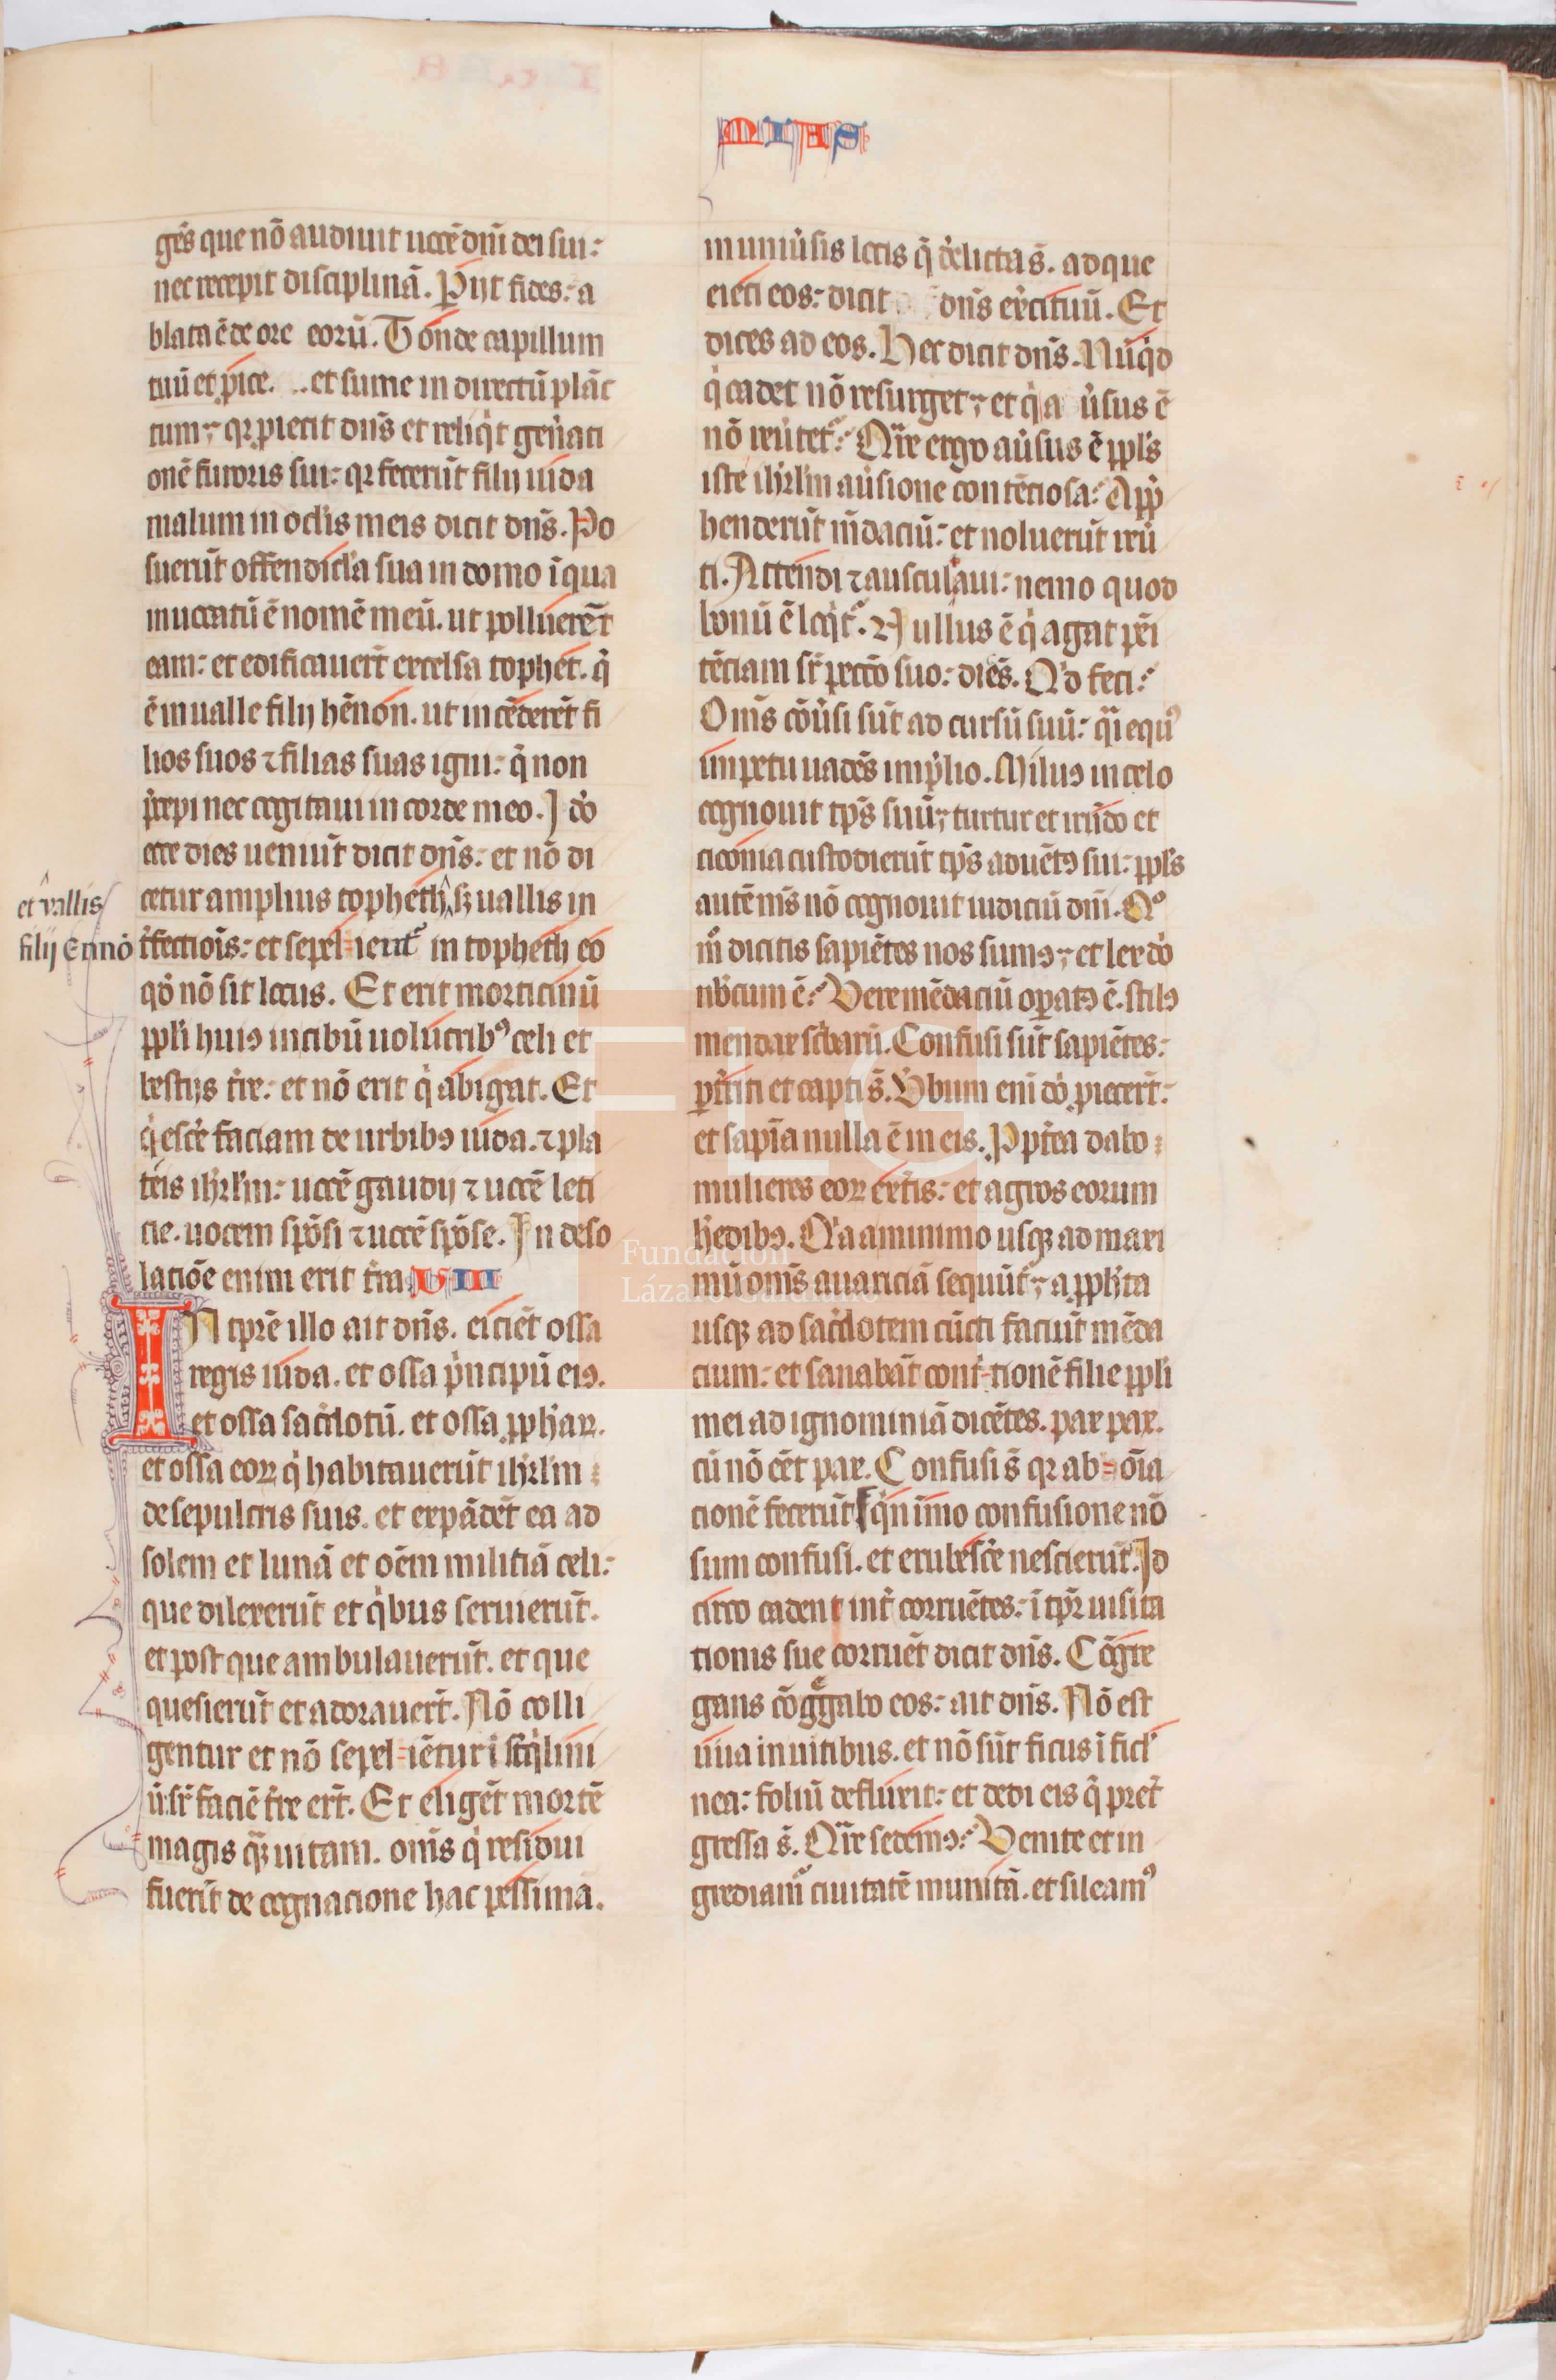 MIAS
gēs que nō audiuit uocē dn̄i dei sui:
nec recepit disciplinā. Pijt fides: a
blata ē de ore eorū. Tonde capillum
tuū et ꝓice. et sume in directū plāc
tum: qꝛ ꝓiecit dn̄s et reliqͥt gen̾ati
onē furoris sui: qꝛ fecerūt filij iuda
malum in oclīs meis dicit dn̄s. Po
suerūt offendicl̄a sua in domo ī qua
inuocatū ē nomē meū. ut polluerēt
eam: et edificauerūt excelsa tophet. q̄
ē in ualle filij hēnon. ut incēderēt fi
lios suos ⁊ filias suas igni: q̄ non
p̄cepi nec cogitaui in corde meo. Idō
ecce dies ueniūt dicit dn̄s: et nō di
cetur amplius topheth, sꝫ uallis in
et vallis
filij Ennō
t̄fectiōis: et sepel-ient᷑ in topheth eo
qō nō sit locus. Et erit morticinū
ppl̄i huiꝯ in cibū uolucribꝰ celi et
bestijs tr̄e: et nō erit qͥ abigat. Et
qͥescē faciam de urbibꝯ iuda. ⁊ pla
teis ihrl̄m: uocē gaudij ⁊ uocē leti
cie. uocem spōsi ⁊ uocē spōse. In deso
latiōe enim erit tr̄a. VIII
IN tp̄re illo ait dn̄s. eiciēt ossa
regis iuda. et ossa pͥncipū eiꝯ.
et ossa sac̄dotū. et ossa ꝓphaꝝ.
et ossa eoꝝ qͥ habitauerūt ihrl̄m
de sepulcris suis. et expādēt ea ad
solem et lunā et oēm militiā celi:
que dilexerūt et qͥbus seruierūt.
et post que ambulauerūt. et que
quesierūt et adorauerūt. Nō colli
gentur et nō sepel-iētur ī stq̄lini
ū. sr̄ faciē tr̄e ert̄. Et eligēt mortē
magis qꝫ uitam. om̄s qͥ residui
fuerīt de cognacione hac pessima.
in uniūsis locis q̄ d̄elicta s̄. ad que
eieci eos: dicit dn̄s ex̄cituū. Et
dices ad eos. Hec dicit dn̄s. Nūqͥd
qͥ cadet nō resurget: et qͥ a ūsus ē
nō reūtet᷑: Qr̄e ergo aūsus ē ppl̄s
iste ihrl̄m aūsione contēciosa: App̄
henderūt m̄daciū: et noluerūt reū
ti. Attendi ⁊ auscultaui: nemo quod
bonū ē loqͥt᷑. Nullus ē qͥ agat pēi
tēciam sr̄ peccō suo: dicēs. Qͥd feci:
Om̄s cōūsi sūt ad cursū suū: q̄i equꝰ
impetu uadēs in p̄lio. Miluꝯ in celo
cognouit tp̄s suū: turtur et irūdo et
ciconia custodierūt tp̄s aduētꝯ sui: ppl̄s
autē m̄s nō cognouit iudiciū dn̄i. Qͦ
mͦ dicitis sapiētes nos sumꝯ: et lex dō
nb̄cum ē: Vere mēdaciū op̄atꝯ ē. stilꝯ
mendax sc̄baꝝ. Confusi sūt sapiētes:
ꝑt̄riti et capti s̄. Ūbum eni dō ꝓiecert̄:
et sapīa nulla ē in eis. Pp̄tea dabo
mulieres eoꝝ ext̄is: et agros eorum
h̄edibꝯ. Qͥa a minimo usqꝫ ad maxi
mū om̄s auariciā sequūt᷑: a ꝓph̄ta
usqꝫ ad sac̄dotem cūcti faciūt mēda
cium: et sanabāt cont̄-tionē filie ppl̄i
mei ad ignominiā dicētes. pax pax.
cū nō eēt pax. Confusi s̄ qꝛ ab-oīa
cionē fecerūt qͥn imo confusione nō
sum confusi. et erubescē nescierūt. Id
circo cadent int̄ corruētes: ī tp̄ꝛ uisita
tionis sue corruēt dicit dn̄s. Cōgre
gans cōggabo eos: ait dn̄s. Nō est
uua in uitibus. et nō sūt ficus ī ficl̄
nea: foliū defluxit: et dedi eis q̄ pret̄
gressa s̄. Qr̄e sedemꝯ: Venite et in
grediam᷑ ciuitatē munitā. et sileamꝰ
Fundación
Lázaro Galdiano